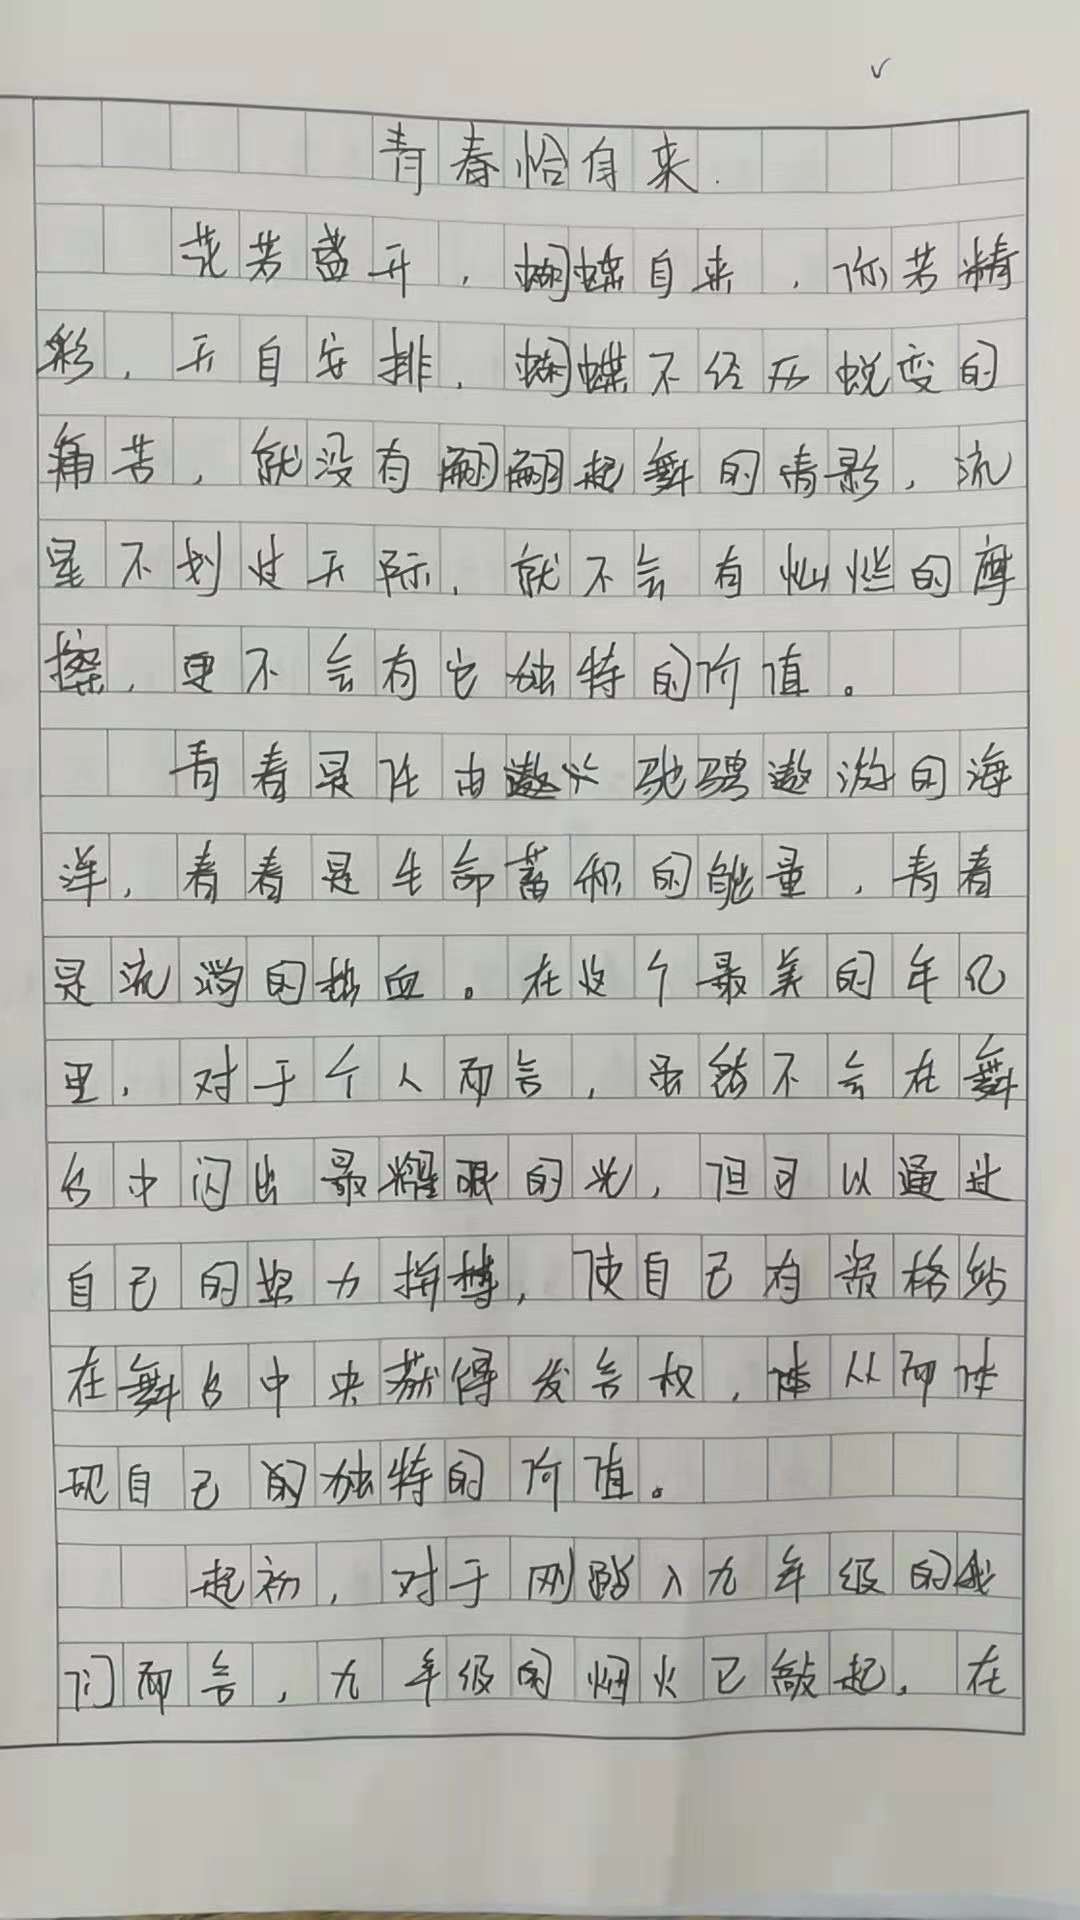 青春恰自来.
花若盛开，蝴蝶自来，你若精
彩，天自安排，蝴蝶不经历蜕变的
痛苦，就没有翩翩起舞的倩影，流
星不划过天际，就不会有灿烂的摩
擦，更不会有它独特的价值。
青春是任由遨 驰骋遨游的海
洋，青春是生命蓄积的能量，青春
是流淌的热血。在这个最美的年纪
里，对于个人而言，虽然不会在舞
台中闪出最耀眼的光，但可以通过
自己的努力拼搏，使自己有资格站
在舞台中央获得发言权，从而体
现自己的独特的价值。
起初，对于刚踏入九年级的我
们而言，九年级的烟火已敲起，在